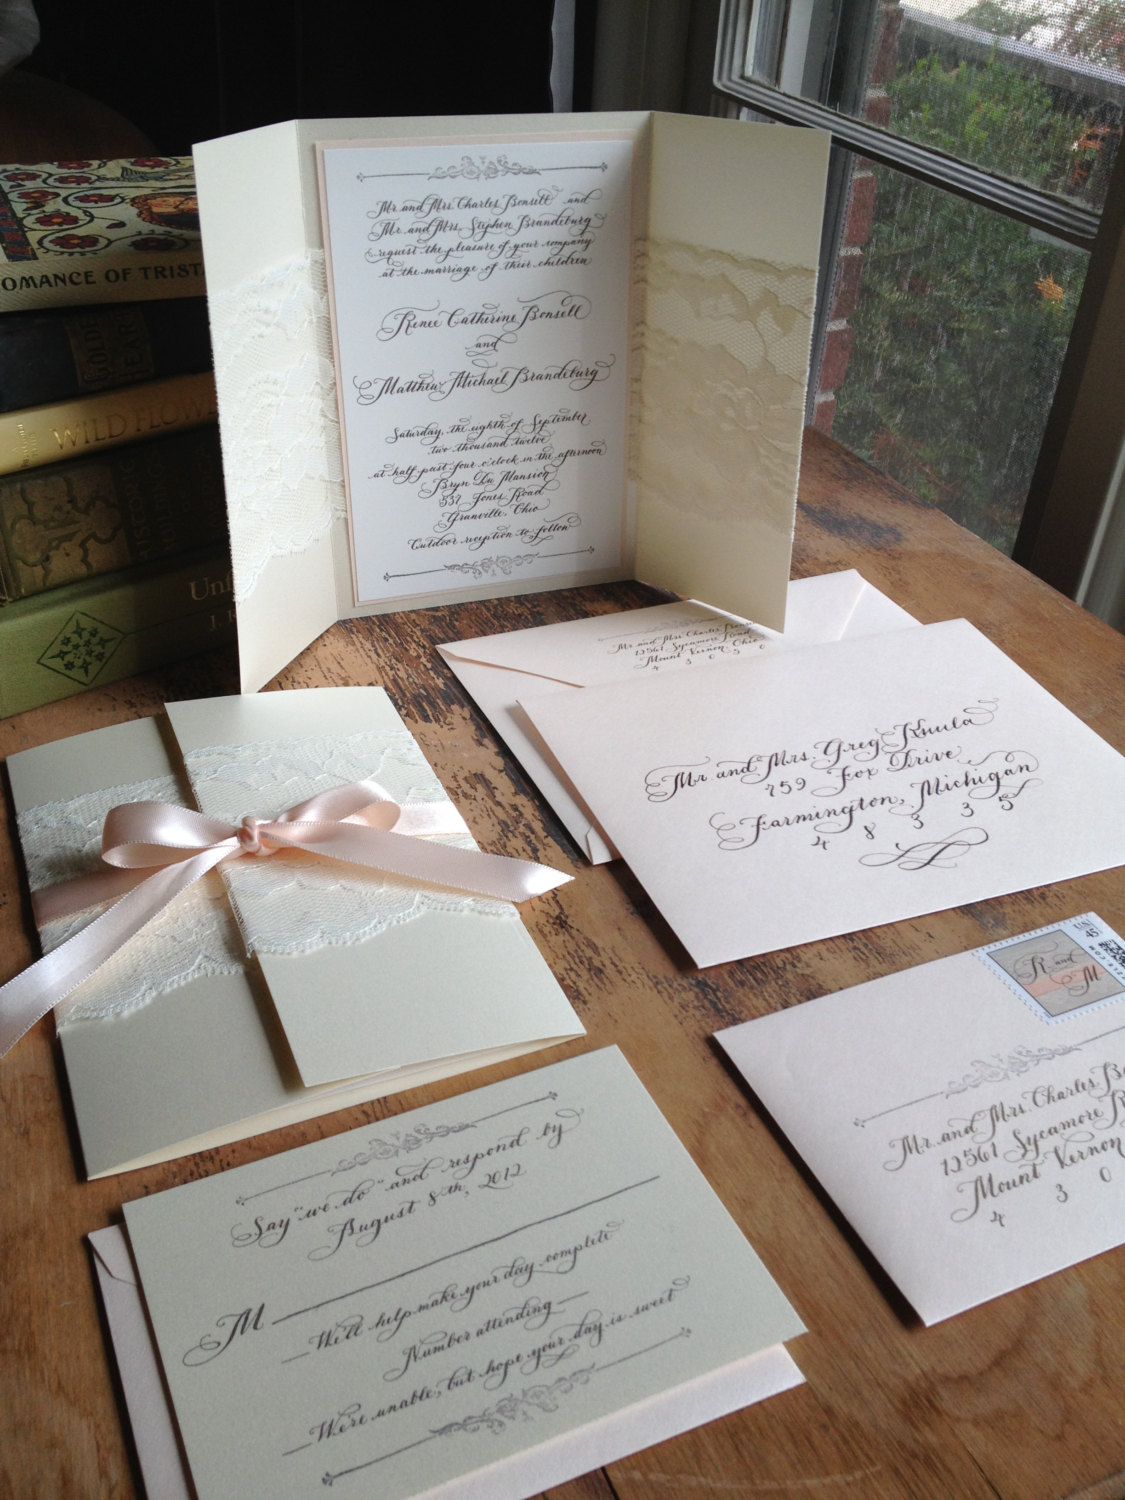 Mr. and Mrs. Charles Bonsell and
Mr. and Mrs. Stephen Brandeburg
request the pleasure of your company
at the marriage of their children
Renee Catherine Bonsell
and
Matthew Michael Brandeburg
Saturday, the eighth of September
two thousand twelve
at half past four o'clock in the afternoon
Bryn Du Mansion
537 Jones Road
Granville, Ohio
Outdoor reception to follow
ROMANCE OF
WILD
Mr and Mrs Charles
12561 Sycamore Road
Mount Vernon, Ohio
4 3 0 5 0
Mr and Mrs. Greg Khula
759 Fox Drive
Farmington, Michigan
4 8 3 3 5
R and M
Mr. and Mrs. Charles
12561 Sycamore
Mount Vernon
4 3 0
Say "we do" and respond by
August 8th, 2012
M
We'll help make your day complete
Number attending
We're unable, but hope your day is sweet